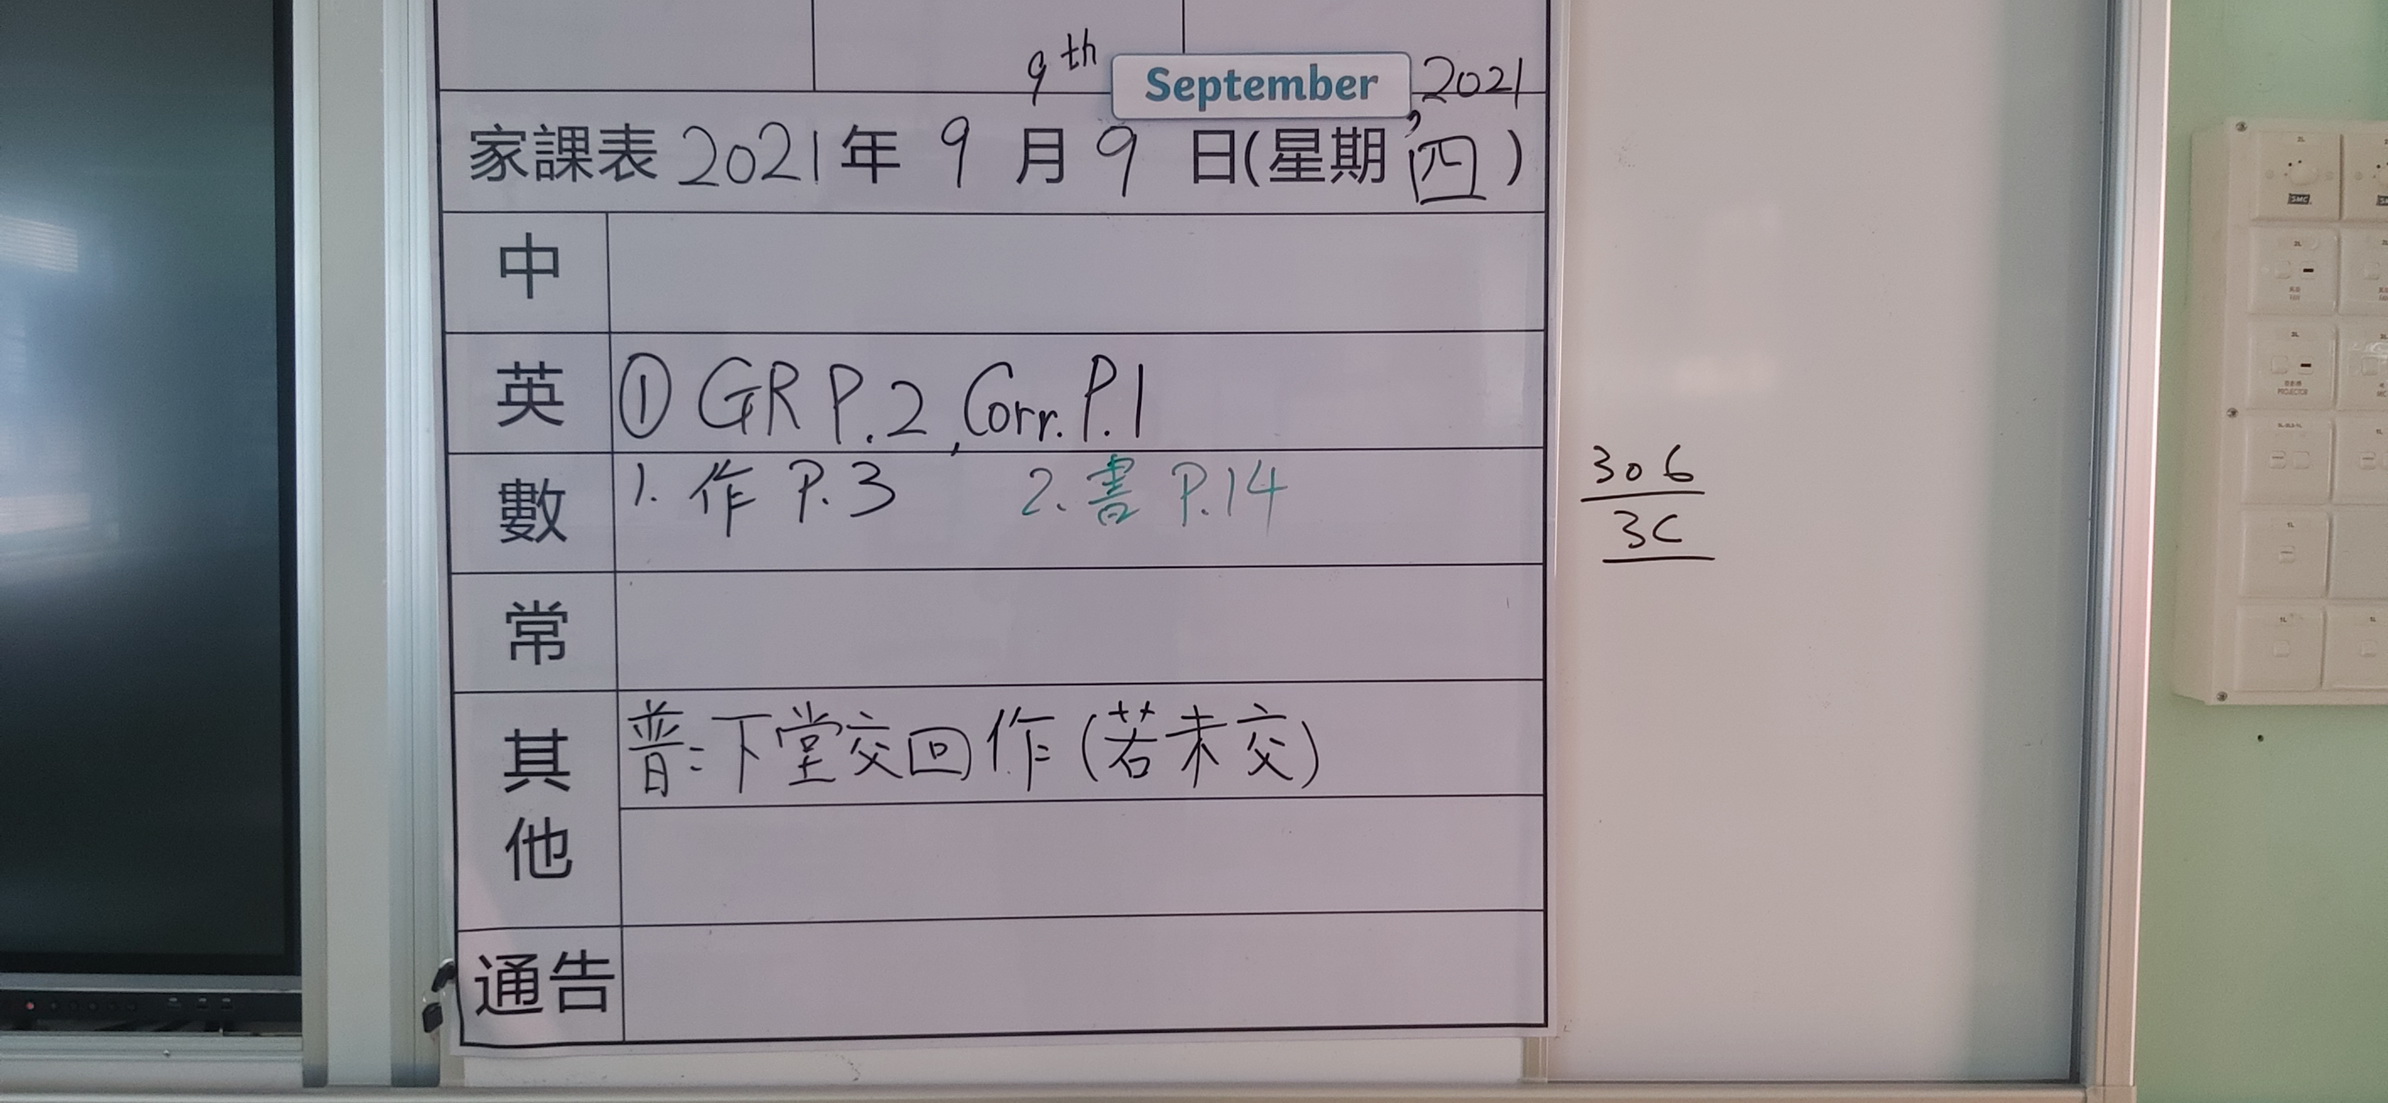 9th September, 2021
家課表 2021年 9 月 9 日(星期 四)
中
英 ① GR P.2, Corr. P.1
數 1. 作 P.3 2. 書 P.14
常
其他 普: 下堂交回作(若未交)
通告
306
3C